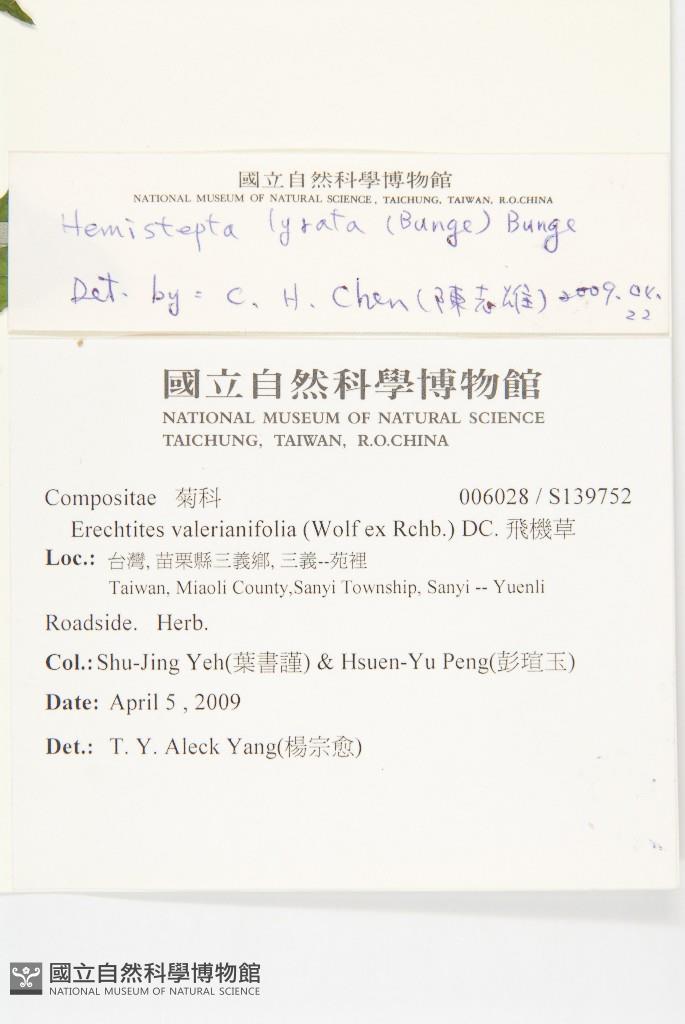 國立自然科學博物館
NATIONAL MUSEUM OF NATURAL SCIENCE, TAICHUNG, TAIWAN, R.O.CHINA
Hemistepta lyrata (Bunge) Bunge
Det. by = C. H. Chen (陳志雄) 2009.04.
22
國立自然科學博物館
NATIONAL MUSEUM OF NATURAL SCIENCE
TAICHUNG, TAIWAN, R.O.CHINA
Compositae 菊科 006028 / S139752
Erechtites valerianifolia (Wolf ex Rchb.) DC. 飛機草
Loc.: 台灣, 苗栗縣三義鄉, 三義--苑裡
Taiwan, Miaoli County,Sanyi Township, Sanyi -- Yuenli
Roadside. Herb.
Col.: Shu-Jing Yeh(葉書謹) & Hsuen-Yu Peng(彭瑄玉)
Date: April 5 , 2009
Det.: T. Y. Aleck Yang(楊宗愈)
國立自然科學博物館
NATIONAL MUSEUM OF NATURAL SCIENCE